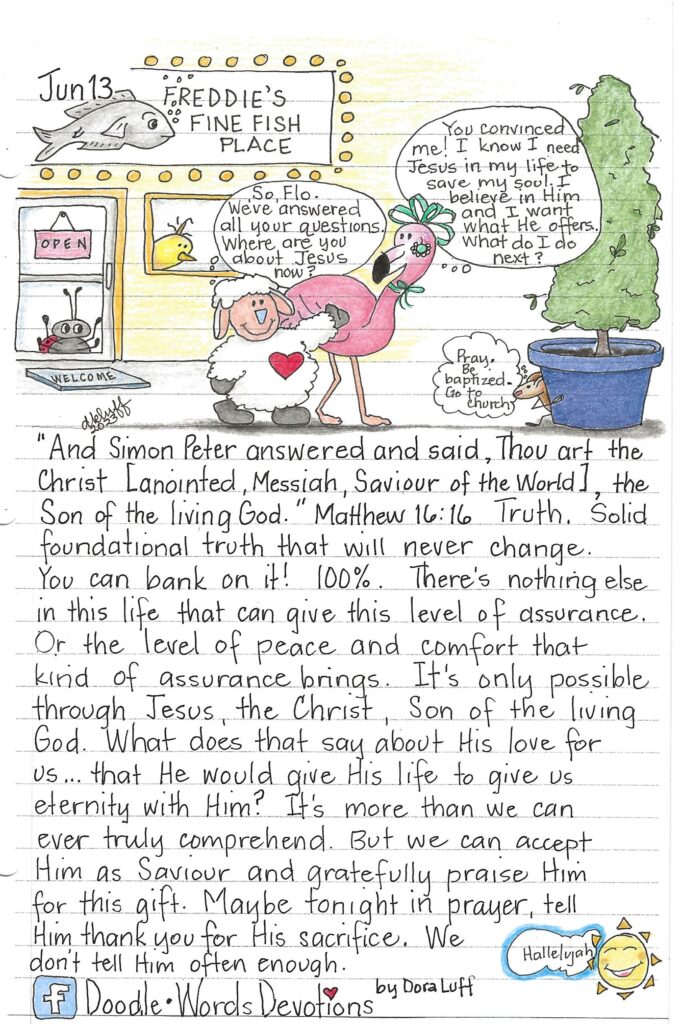 Jun 13
FREDDIE'S
FINE FISH
PLACE
OPEN
WELCOME
So, Flo.
We've answered
all your questions.
Where are you
about Jesus
now?
You convinced
me! I know I need
Jesus in my life to
save my soul. I
believe in Him
and I want
what He offers.
What do I do
next?
Pray.
Be
baptized.
Go to
church
2023
"And Simon Peter answered and said, Thou art the
Christ [anointed, Messiah, Saviour of the World], the
Son of the living God." Matthew 16:16 Truth. Solid
foundational truth that will never change.
You can bank on it! 100%. There's nothing else
in this life that can give this level of assurance.
Or the level of peace and comfort that
kind of assurance brings. It's only possible
through Jesus, the Christ, Son of the living
God. What does that say about His love for
us... that He would give His life to give us
eternity with Him? It's more than we can
ever truly comprehend. But we can accept
Him as Saviour and gratefully praise Him
for this gift. Maybe tonight in prayer, tell
Him thank you for His sacrifice. We
don't tell Him often enough.
Hallelujah
f Doodle•Words Devotions by Dora Luff